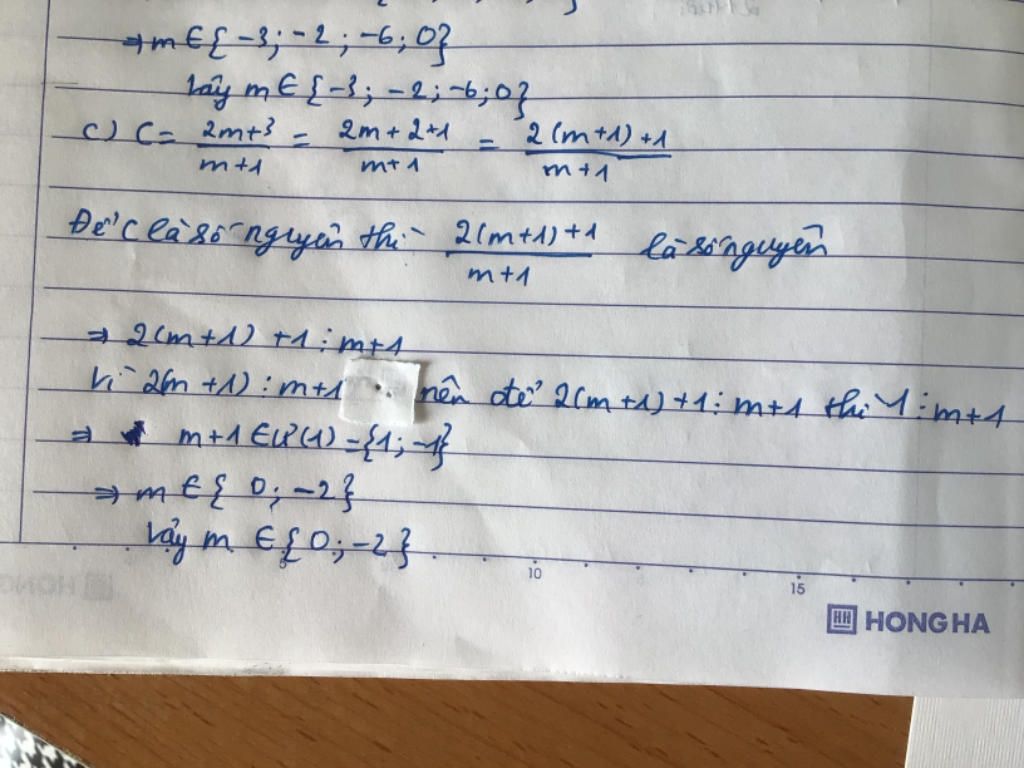 ⇒ m ∈ {-3; -2; -6; 0}
Vậy m ∈ {-3; -2; -6; 0}
c) C = (2m+3)/(m+1) = (2m+2+1)/(m+1) = (2(m+1)+1)/(m+1)
Để C là số nguyên thì (2(m+1)+1)/(m+1) là số nguyên
⇒ 2(m+1) +1 ⋮ m+1
Vì 2(m+1) ⋮ m+1 nên để 2(m+1)+1 ⋮ m+1 thì 1 ⋮ m+1
⇒ m+1 ∈ Ư(1) = {1; -1}
⇒ m ∈ { 0; -2}
Vậy m ∈ {0; -2}
10
15
HONG HA